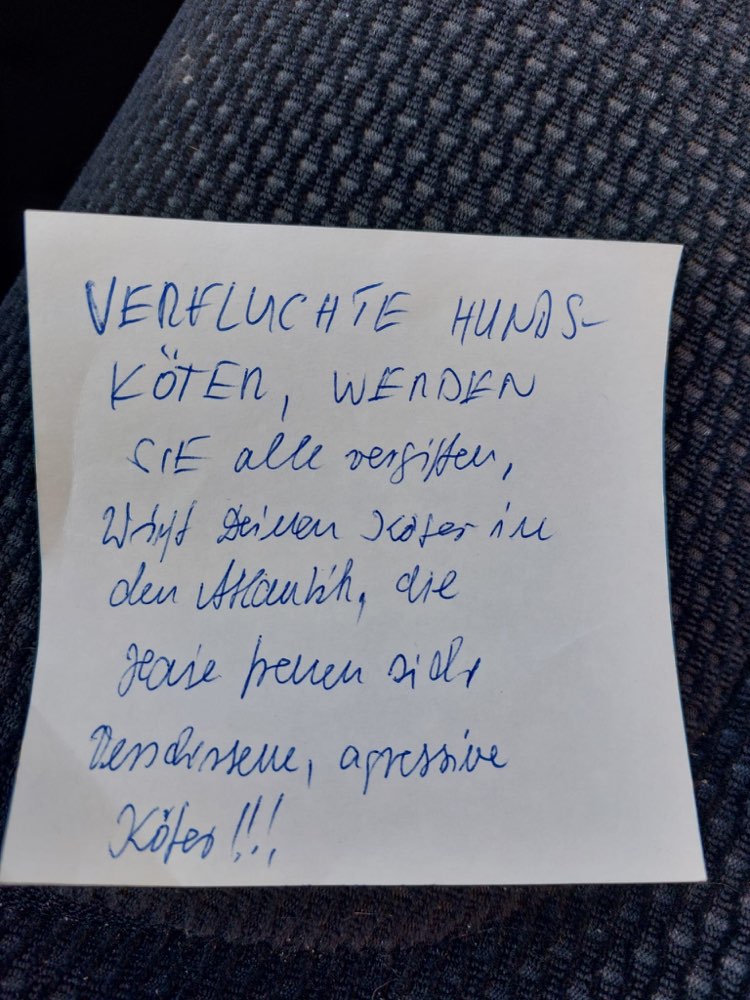 VERFLUCHTE HUNDS-
KÖTER, WERDEN
SIE alle vergiften,
Wirf Deinen Köter in
den Atlantik, die
Haie freuen sich
Beschissene, agressive
Köter!!!